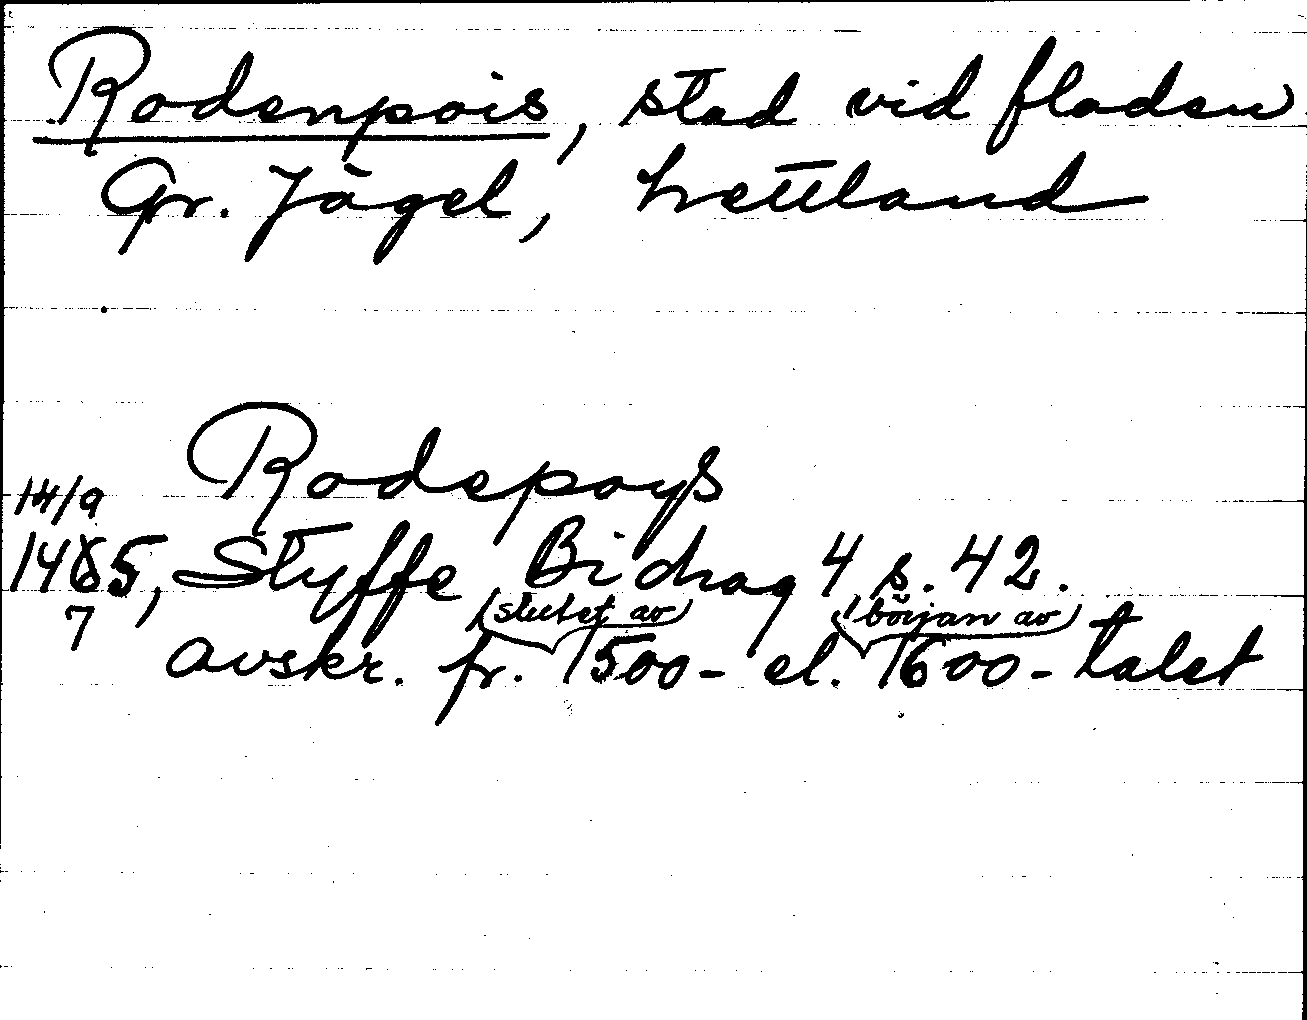 Rodenpois, stad vid floden
Gr. Jägel, Lettland
Rodepoys
14/9
1485, Styffe Bidrag 4 s. 42.
7 (slutet av) (början av)
avskr. fr. 1500- el. 1600-talet